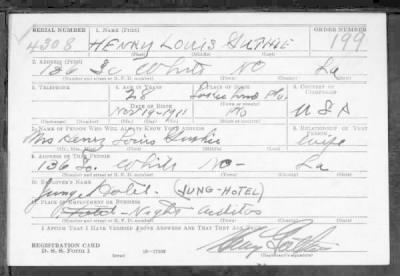 SERIAL NUMBER 1. NAME (Print) ORDER NUMBER
4308 HENRY LOUIS GUTHIE 199
(First) (Middle) (Last)
2. ADDRESS (Print)
136 So. White NO La
(Number and street or R. F. D. number) (Town) (County) (State)
3. TELEPHONE 4. AGE IN YEARS 5. PLACE OF BIRTH 6. COUNTRY OF CITIZENSHIP
28
DATE OF BIRTH
Nov-19-1911 Mo U S A
(Mo.) (Day) (Yr.) (State or country)
7. NAME OF PERSON WHO WILL ALWAYS KNOW YOUR ADDRESS 8. RELATIONSHIP OF THAT PERSON
Mrs Henry Louis Guthie Wife
(Mr., Mrs., Miss) (First) (Middle) (Last)
9. ADDRESS OF THAT PERSON
136 So. White NO- La
(Number and street or R. F. D. number) (Town) (County) (State)
10. EMPLOYER'S NAME
Jung Hotel. (JUNG-HOTEL)
11. PLACE OF EMPLOYMENT OR BUSINESS
Hotel - Night Auditor
(Number and street or R. F. D. number) (Town) (County) (State)
I AFFIRM THAT I HAVE VERIFIED ABOVE ANSWERS AND THAT THEY ARE TRUE.
REGISTRATION CARD
D. S. S. Form 1
(Registrant's signature)